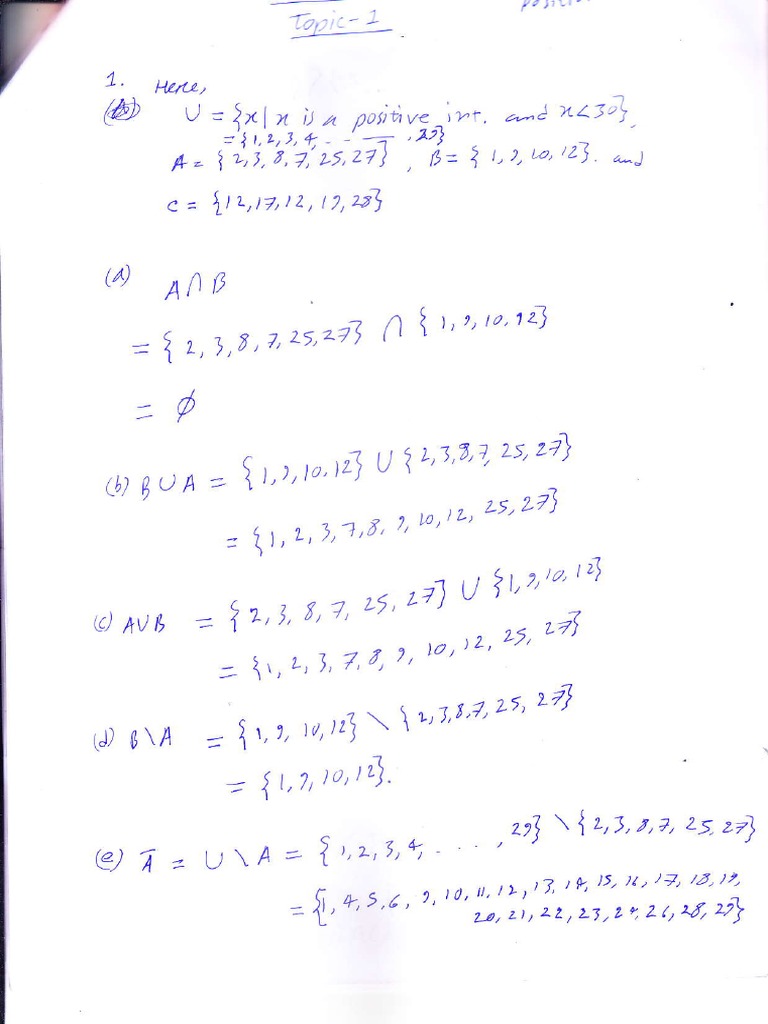 Topic-1
1. Here,
U = {x | x is a positive int. and x<30},
= {1,2,3,4, ... , 29}
A = {2,3,8,7,25,27}, B = {1,9,10,12}. and
C = {12,17,12,19,28}
(a) A∩B
= {2,3,8,7,25,27} ∩ {1,9,10,12}
= ∅
(b) B∪A = {1,9,10,12} ∪ {2,3,8,7,25,27}
= {1,2,3,7,8,9,10,12,25,27}
(c) A∪B = {2,3,8,7,25,27} ∪ {1,9,10,12}
= {1,2,3,7,8,9,10,12,25,27}
(d) B\A = {1,9,10,12} \ {2,3,8,7,25,27}
= {1,9,10,12}.
(e) Ā = U\A = {1,2,3,4, ......, 29} \ {2,3,8,7,25,27}
= {1,4,5,6,9,10,11,12,13,14,15,16,17,18,19,
20,21,22,23,24,26,28,29}